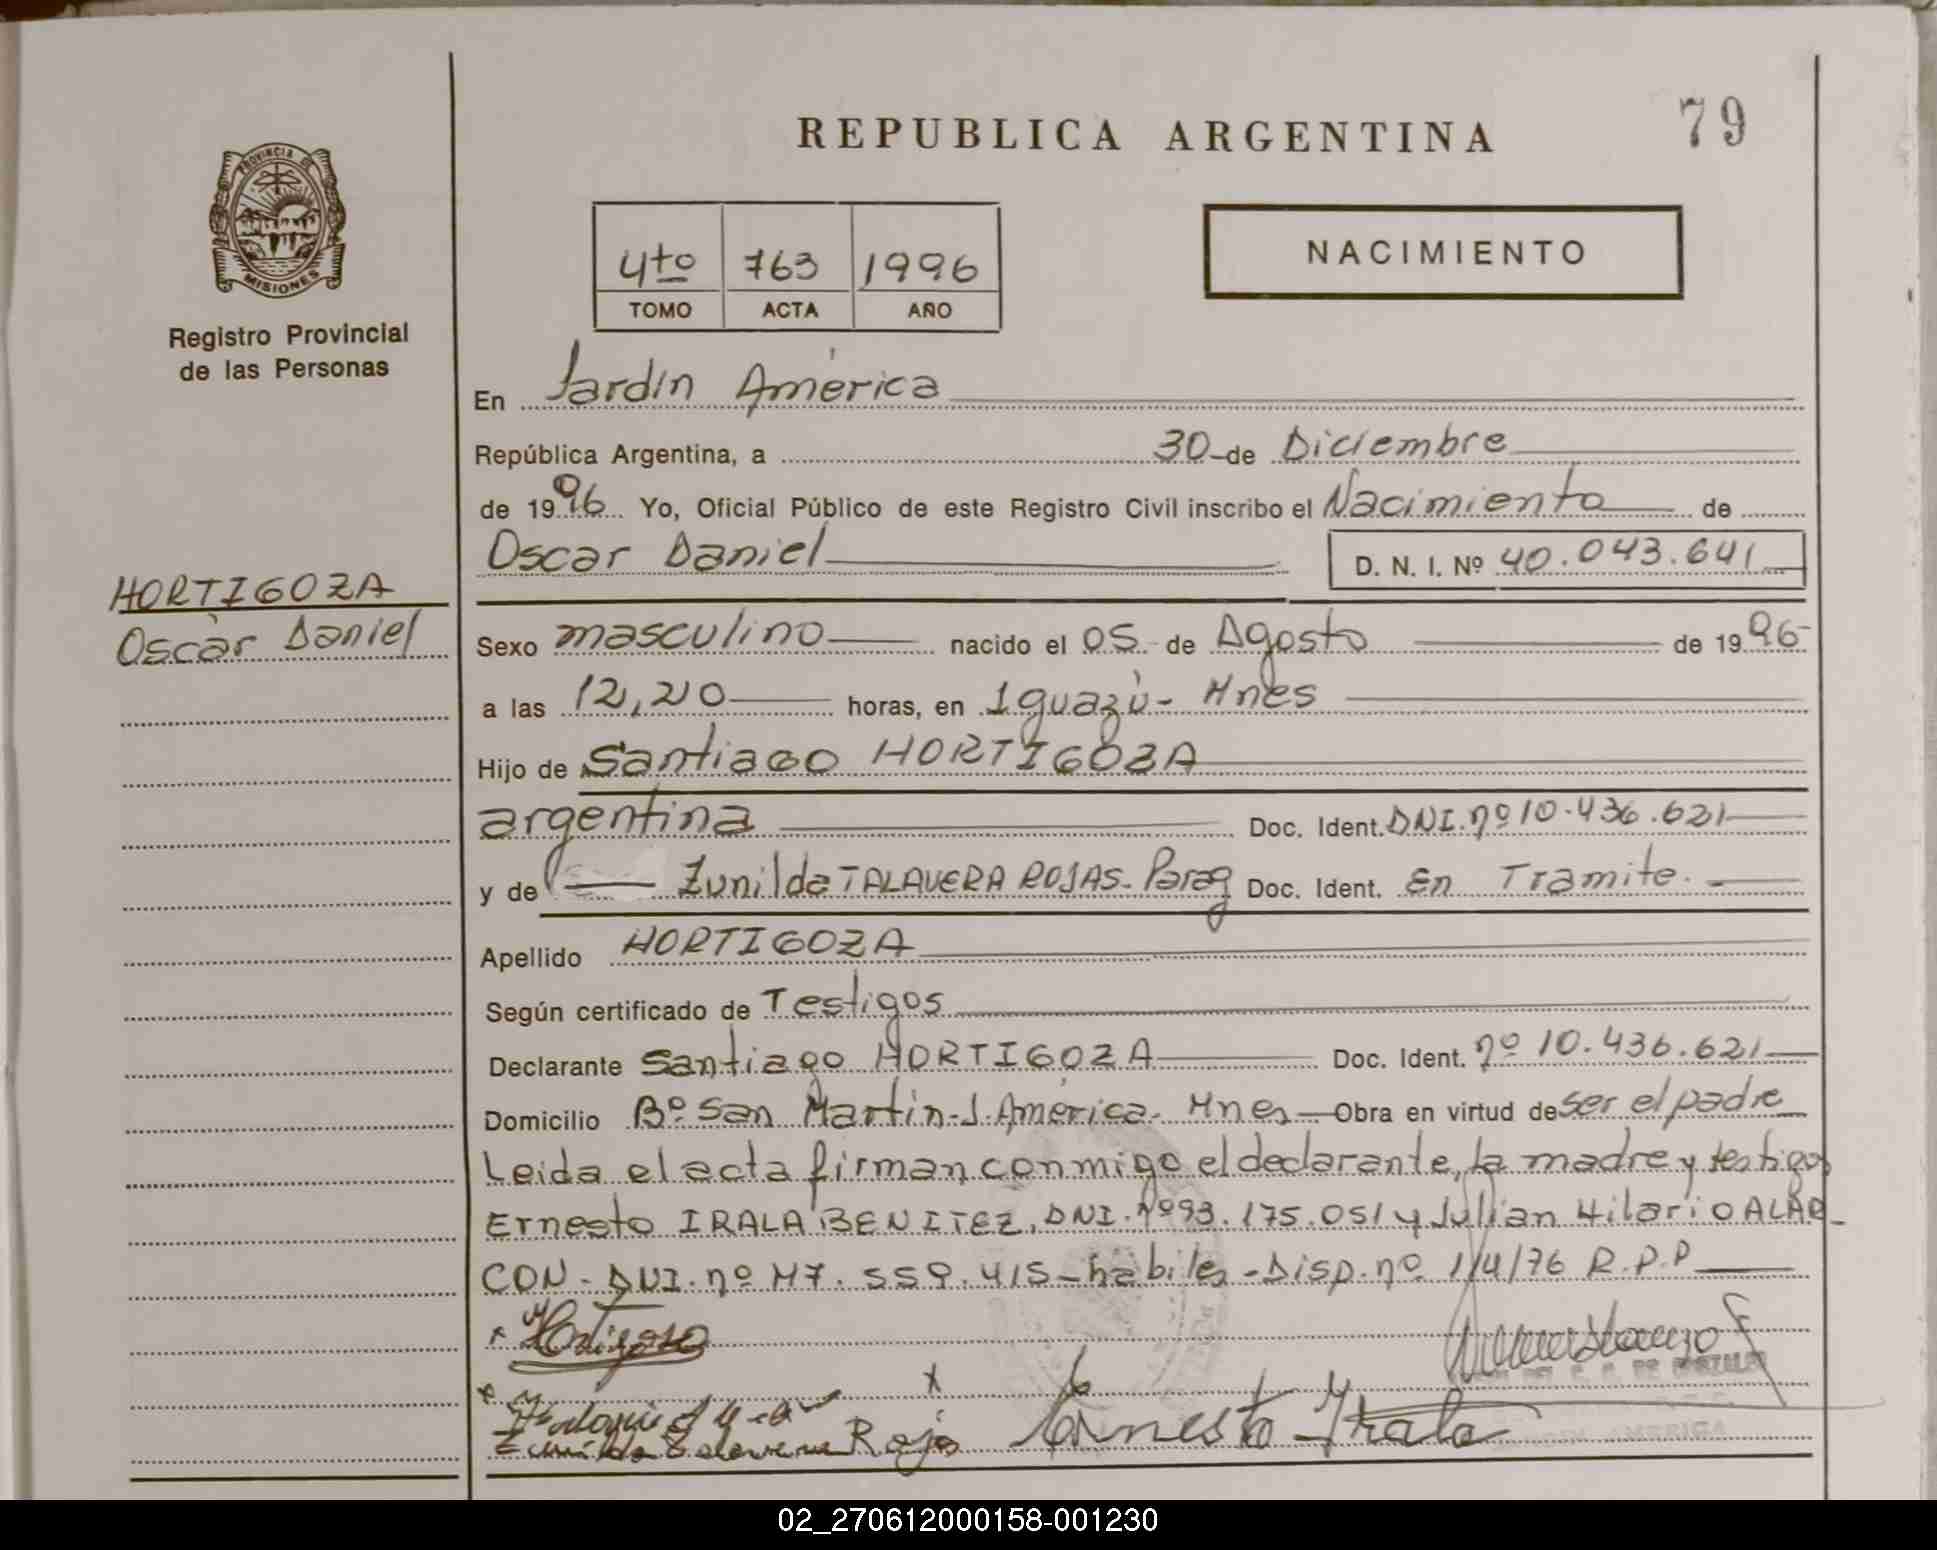 REPUBLICA ARGENTINA
79
PROVINCIA DE MISIONES
Registro Provincial
de las Personas
4to 763 1996
TOMO ACTA AÑO
NACIMIENTO
En Jardín América
República Argentina, a 30 de Diciembre
de 1996 Yo, Oficial Público de este Registro Civil inscribo el Nacimiento de
Oscar Daniel D. N. I. Nº 40.043.641
HORTIGOZA
Oscar Daniel
Sexo masculino nacido el 05 de Agosto de 1996
a las 12,20 horas, en Iguazú - Mnes
Hijo de Santiago HORTIGOZA
argentina Doc. Ident. DNI. nº 10.436.621
y de Zunilda TALAVERA ROJAS - Parag Doc. Ident. En Tramite.
Apellido HORTIGOZA
Según certificado de Testigos
Declarante Santiago HORTIGOZA Doc. Ident. nº 10.436.621
Domicilio Bº San Martín - J. América - Mnes - Obra en virtud de ser el padre
Leida el acta firman conmigo el declarante, la madre y testigos
Ernesto IRALA BENITEZ, DNI. nº 93.175.051 y Julian Hilario ALAR-
CON - DNI. nº M7.559.415 - hábiles - Disp. nº 1/4/76 R.P.P
Ernesto Irala
Rojas
02_270612000158-001230